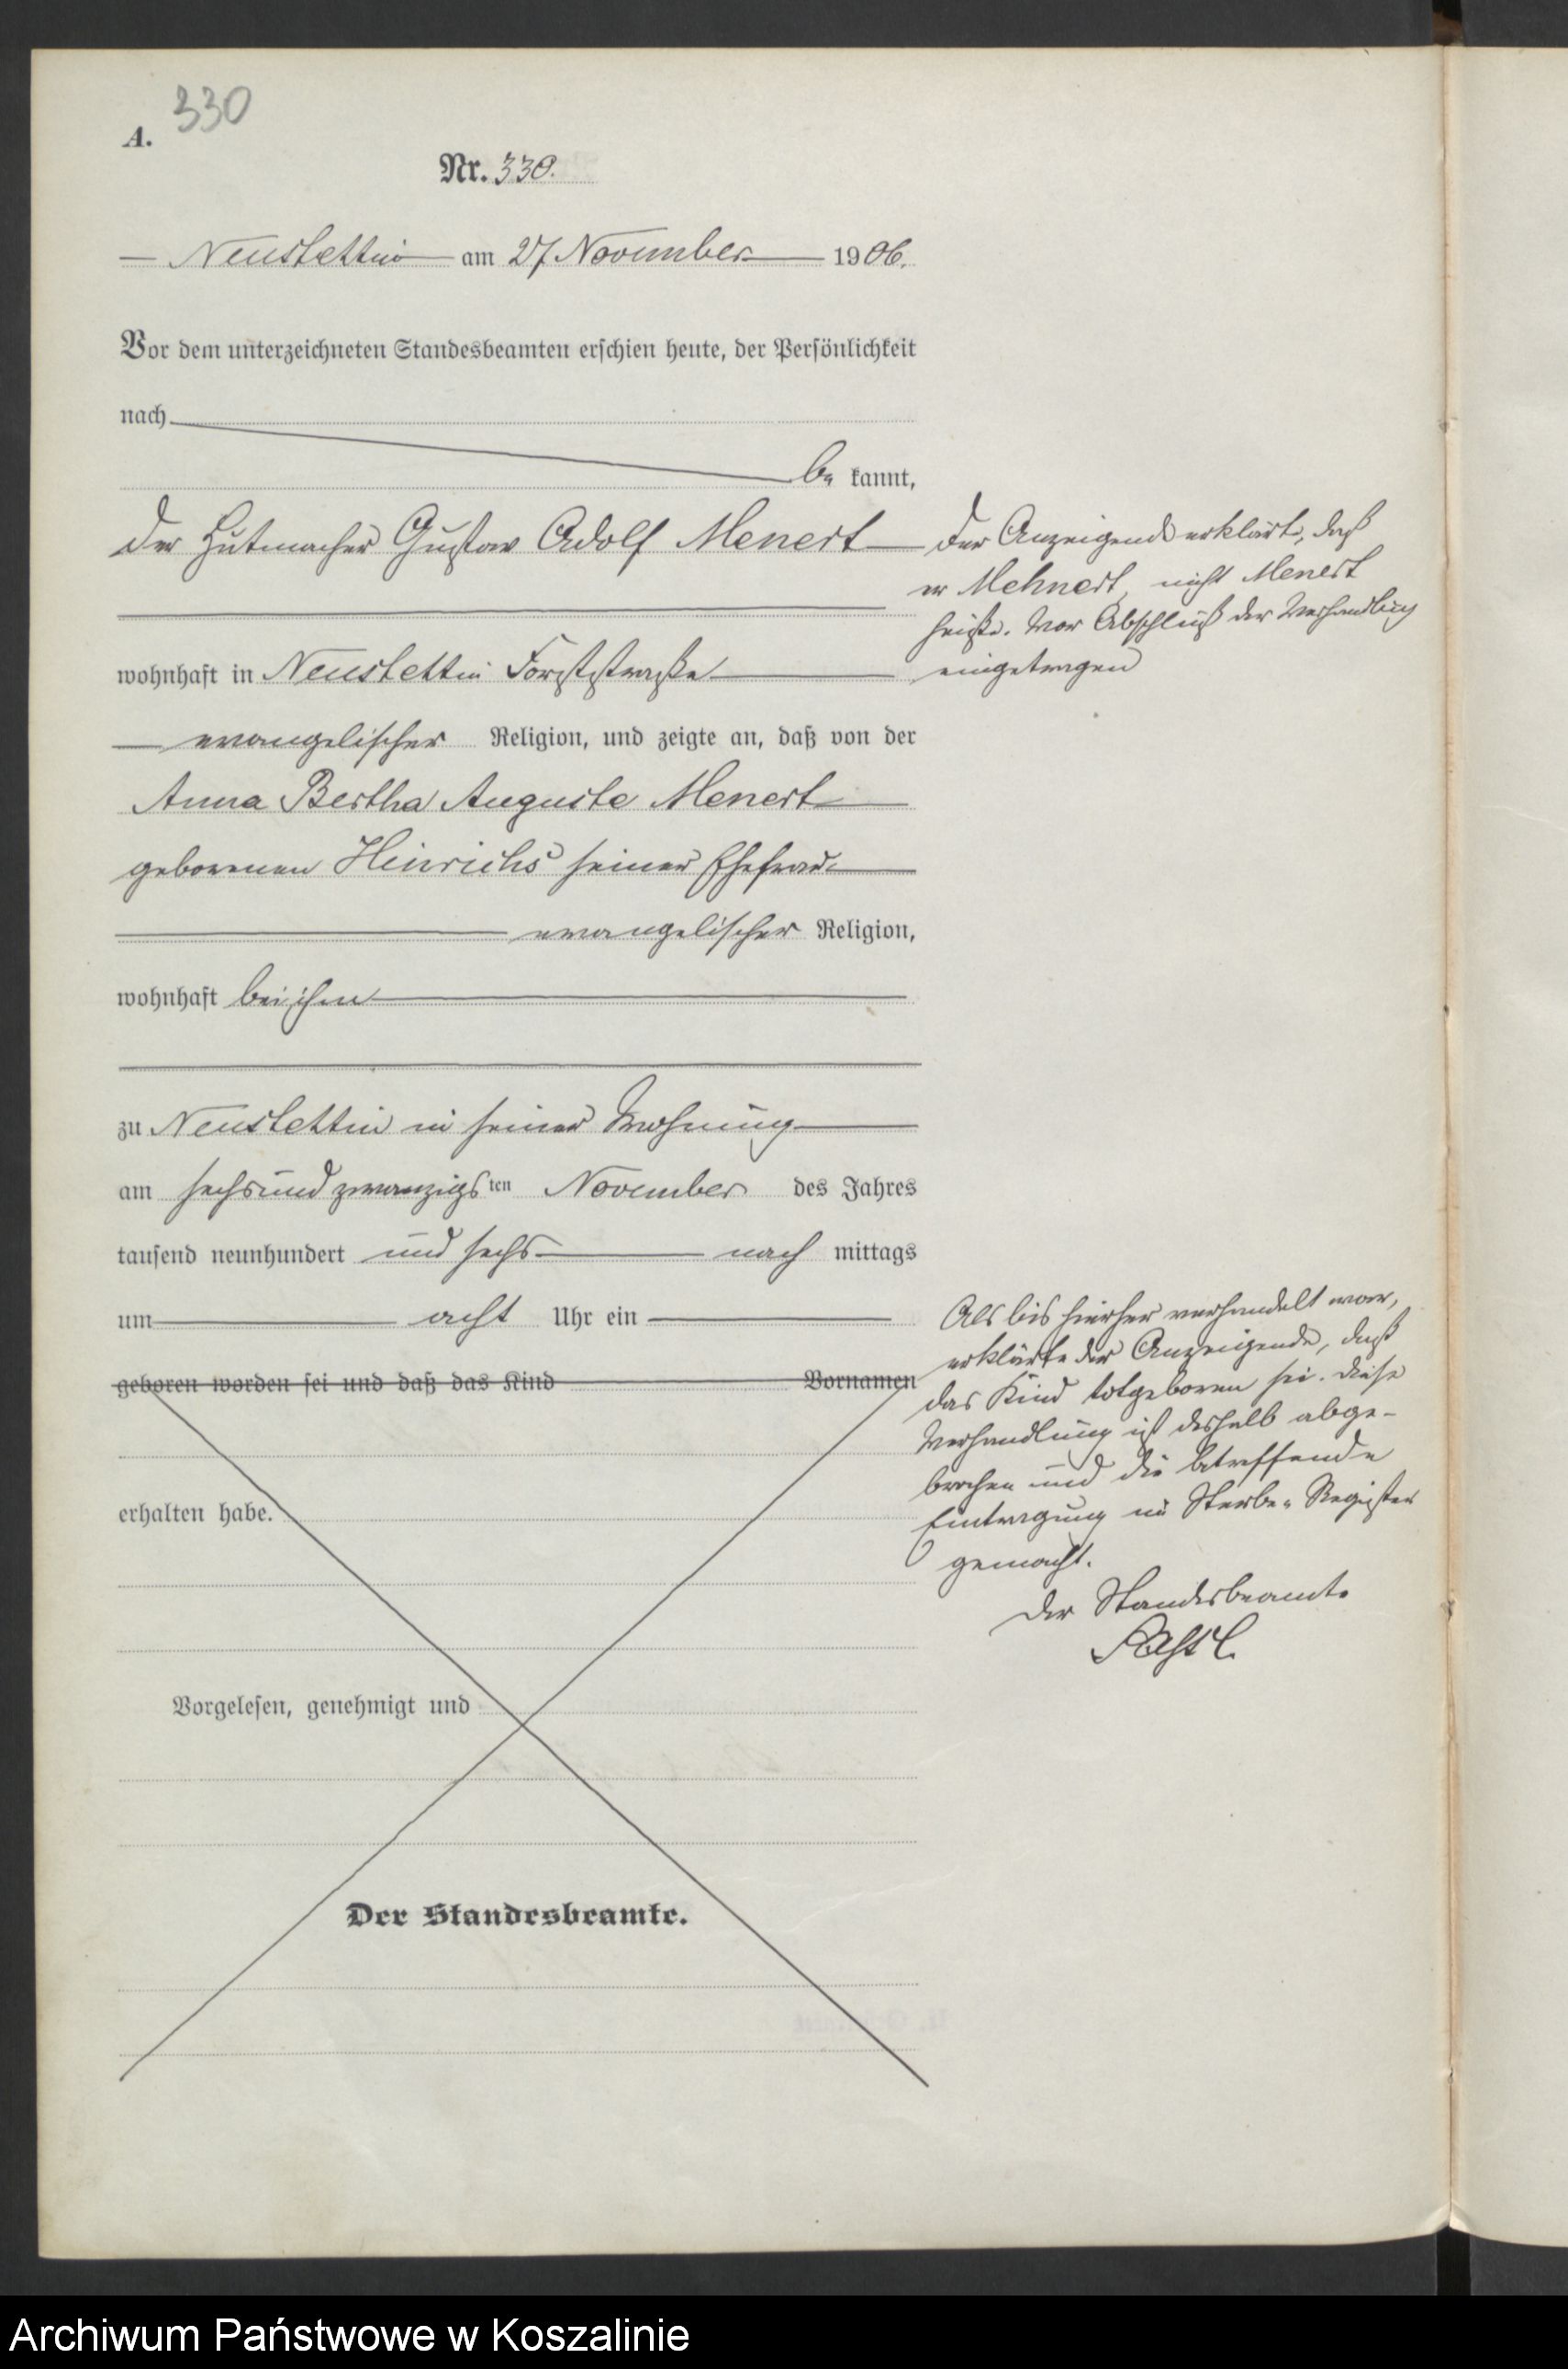 330
A.
Nr. 330.
Neustettin am 27 November 1906.
Vor dem unterzeichneten Standesbeamten erschien heute, der Persönlichkeit
nach
be kannt,
der Hutmacher Gustav Adolf Menert
Der Anzeigende erklärt, daß
er Mehnert, nicht Menert
heiße. Vor Abschluß der Verhandlung
eingetragen
wohnhaft in Neustettin Forststraße
evangelischer Religion, und zeigte an, daß von der
Anna Bertha Auguste Menert
geborenen Heinrichs seiner Ehefrau
evangelischer Religion,
wohnhaft bei ihm
zu Neustettin in seiner Wohnung
am sechsundzwanzigsten November des Jahres
tausend neunhundert und sechs nach mittags
um acht Uhr ein
geboren worden sei und daß das Kind Vornamen
Als bis hierher verhandelt war,
erklärte der Anzeigende, daß
das Kind totgeboren sei. Diese
Verhandlung ist deshalb abge-
brochen und die betreffende
Eintragung im Sterbe-Register
gemacht.
Der Standesbeamte
erhalten habe.
Vorgelesen, genehmigt und
Der Standesbeamte.
Archiwum Państwowe w Koszalinie